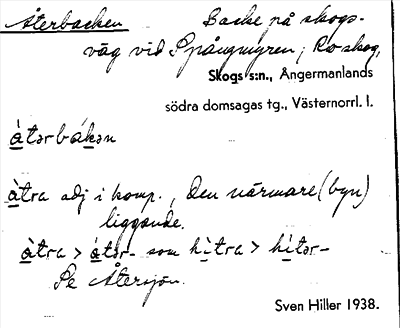 Återbacken Backe på skogs-
väg vid Spångmyren; Ro skog,
Skogs s:n., Ångermanlands
södra domsagas tg., Västernorrl. l.
àtərbákən
àtra adj i komp., den närmare (byn)
liggande.
àtra > átər- som hìtra > hítər-
Se Återsjön.
Sven Hiller 1938.